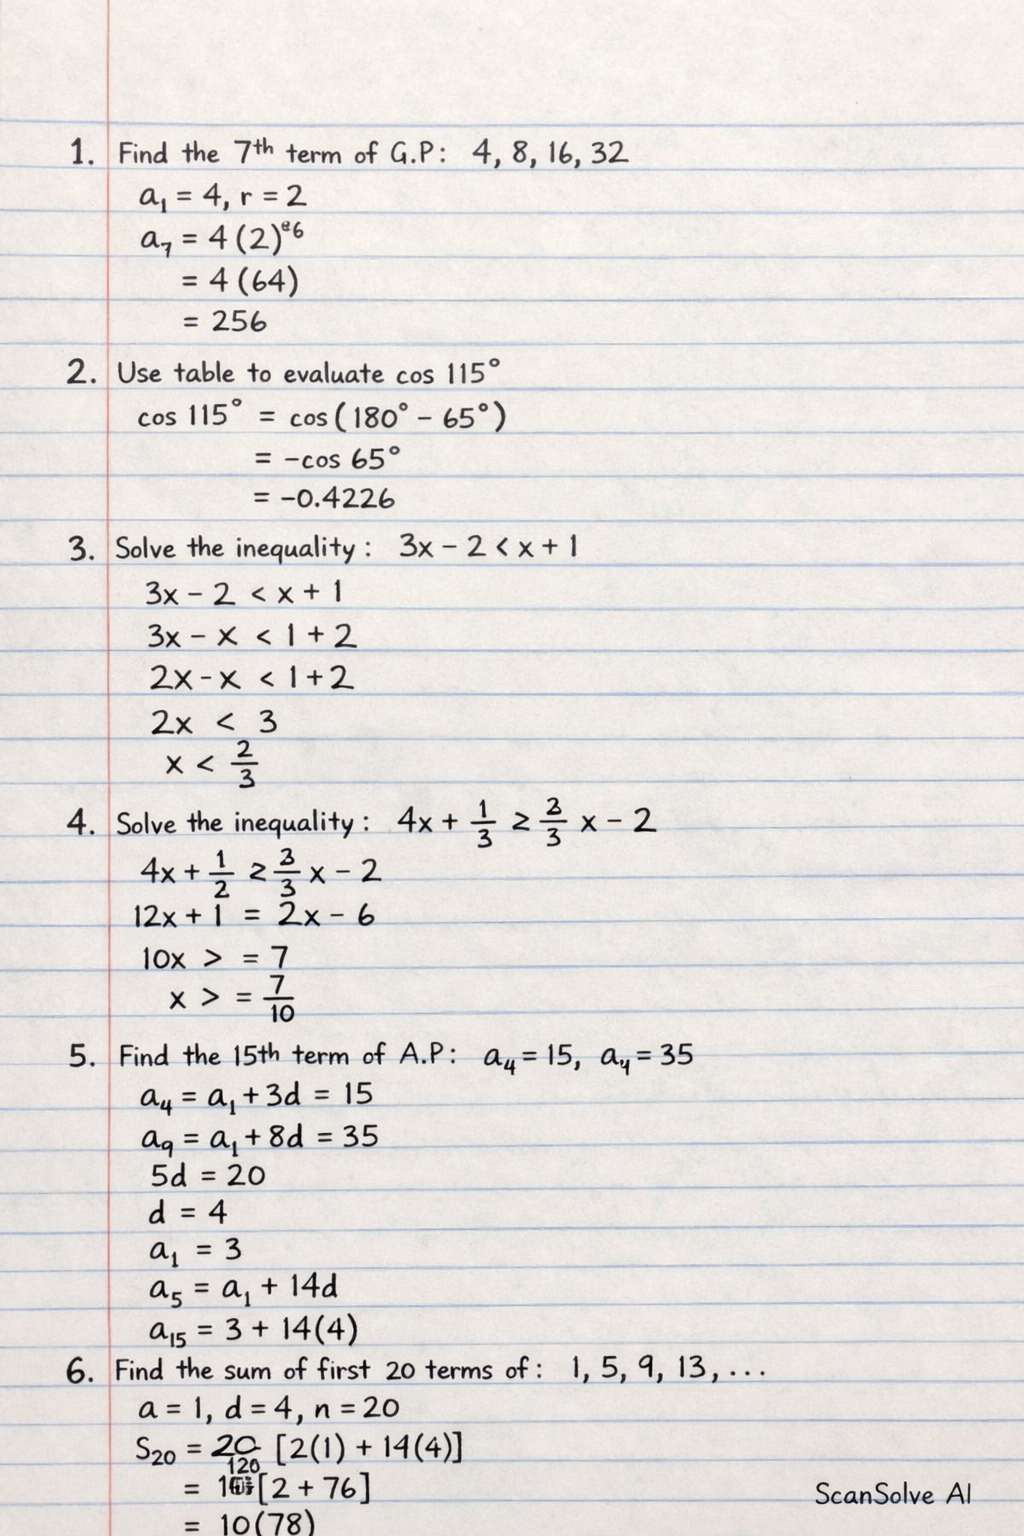 1. Find the 7th term of G.P: 4, 8, 16, 32
a₁ = 4, r = 2
a₇ = 4(2)ᵉ⁶
= 4(64)
= 256
2. Use table to evaluate cos 115°
cos 115° = cos(180° - 65°)
= -cos 65°
= -0.4226
3. Solve the inequality: 3x - 2 < x + 1
3x - 2 < x + 1
3x - x < 1 + 2
2x - x < 1 + 2
2x < 3
x < 2/3
4. Solve the inequality: 4x + 1/3 ≥ 2/3 x - 2
4x + 1/2 ≥ 3/3 x - 2
12x + 1 = 2x - 6
10x > = 7
x > = 7/10
5. Find the 15th term of A.P: a₄ = 15, a₄ = 35
a₄ = a₁ + 3d = 15
a₉ = a₁ + 8d = 35
5d = 20
d = 4
a₁ = 3
a₅ = a₁ + 14d
a₁₅ = 3 + 14(4)
6. Find the sum of first 20 terms of: 1, 5, 9, 13, ...
a = 1, d = 4, n = 20
S₂₀ = 20/120 [2(1) + 14(4)]
= [2 + 76]
= 10(78)
ScanSolve AI